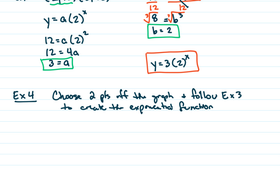 y = a(2)^x
12 12
∛8 = ∛b³
12 = a(2)²
b = 2
12 = 4a
3 = a
y = 3(2)^x
Ex 4 Choose 2 pts off the graph + follow Ex 3
to create the exponential function